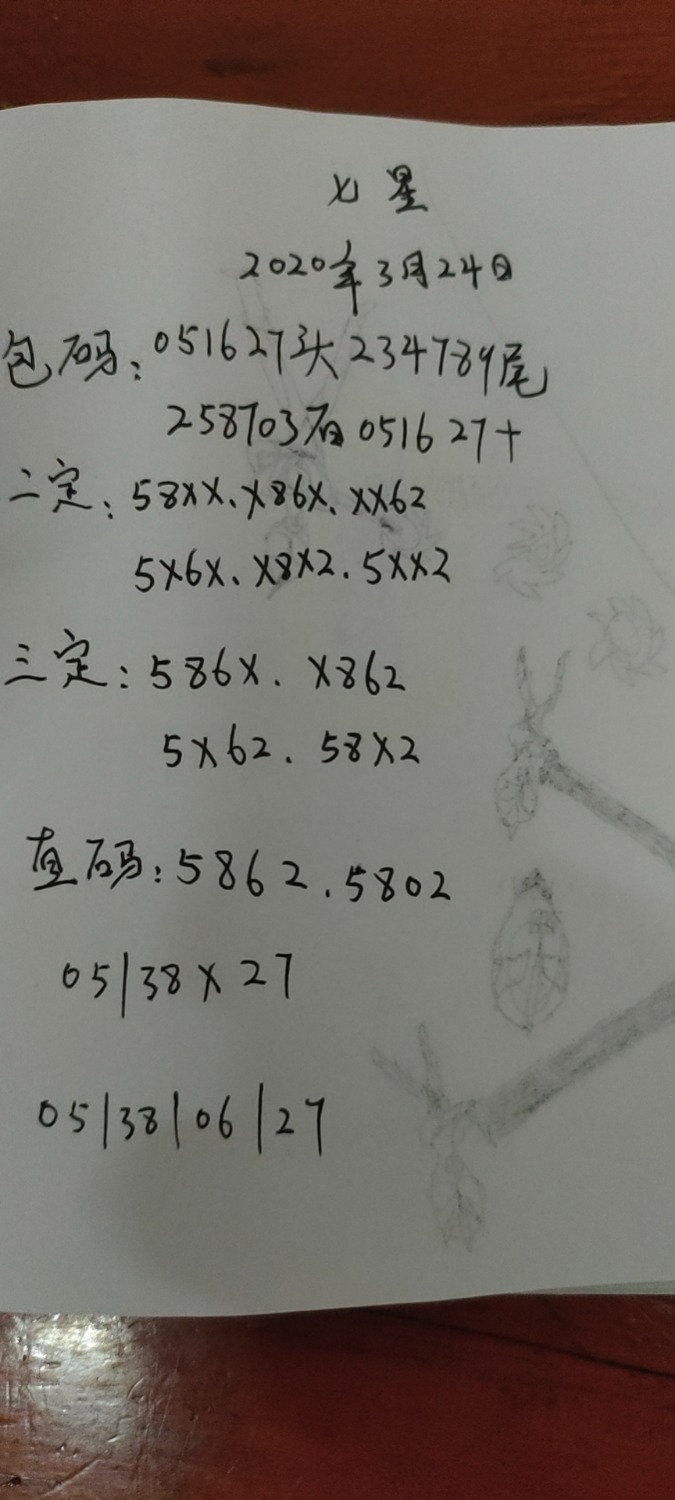 七星
2020年3月24日
包码：051627头234789尾
258703百051627十
二定：58XX.X86X.XX62
5X6X.X8X2.5XX2
三定：586X.X862
5X62.58X2
直码：5862.5802
05|38X27
05|38|06|27